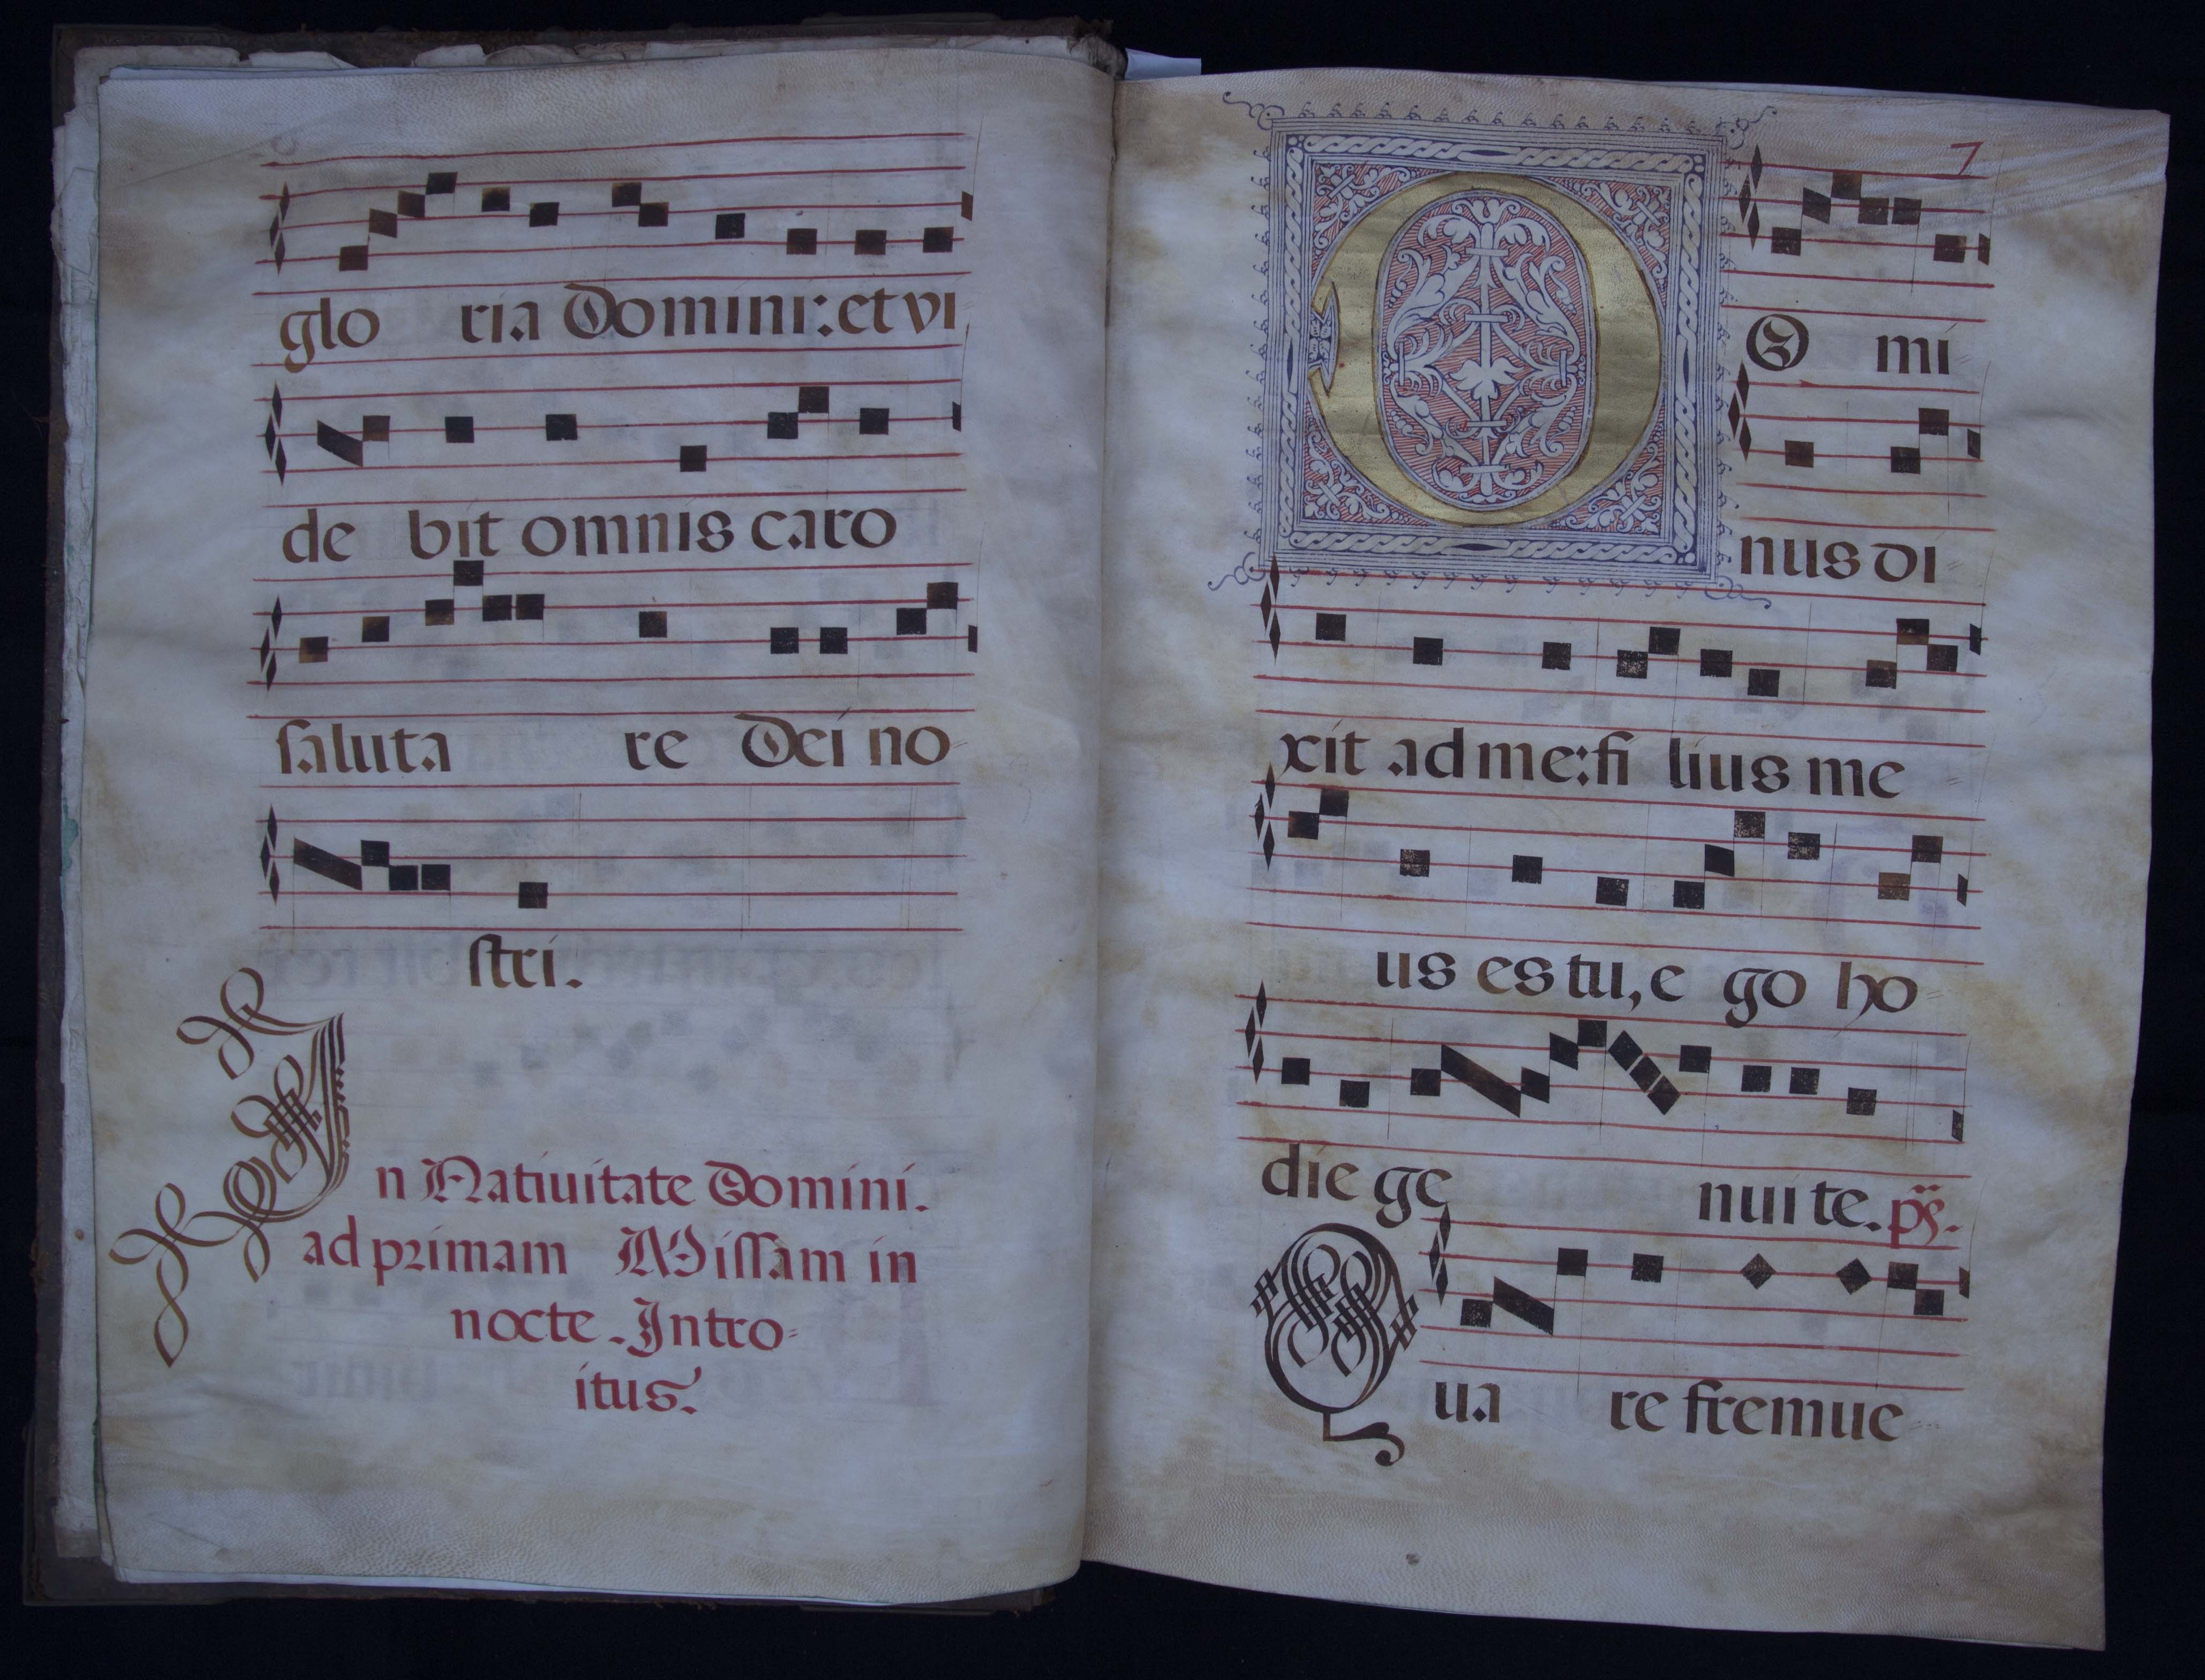 glo ria Domini: et vi
de bit omnis caro
saluta re Dei no
stri.
In Natiuitate Domini.
ad primam Missam in
nocte. Intro=
itus.
7
DO mi=
nus di
xit ad me: fi lius me
us es tu, e go ho=
die ge nui te. ps.
Qua re fremue=